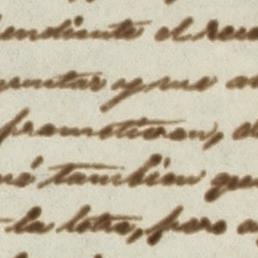 endiente el rec
guntar y me a
prometieron, d
né tambien que
la lotra, paro a